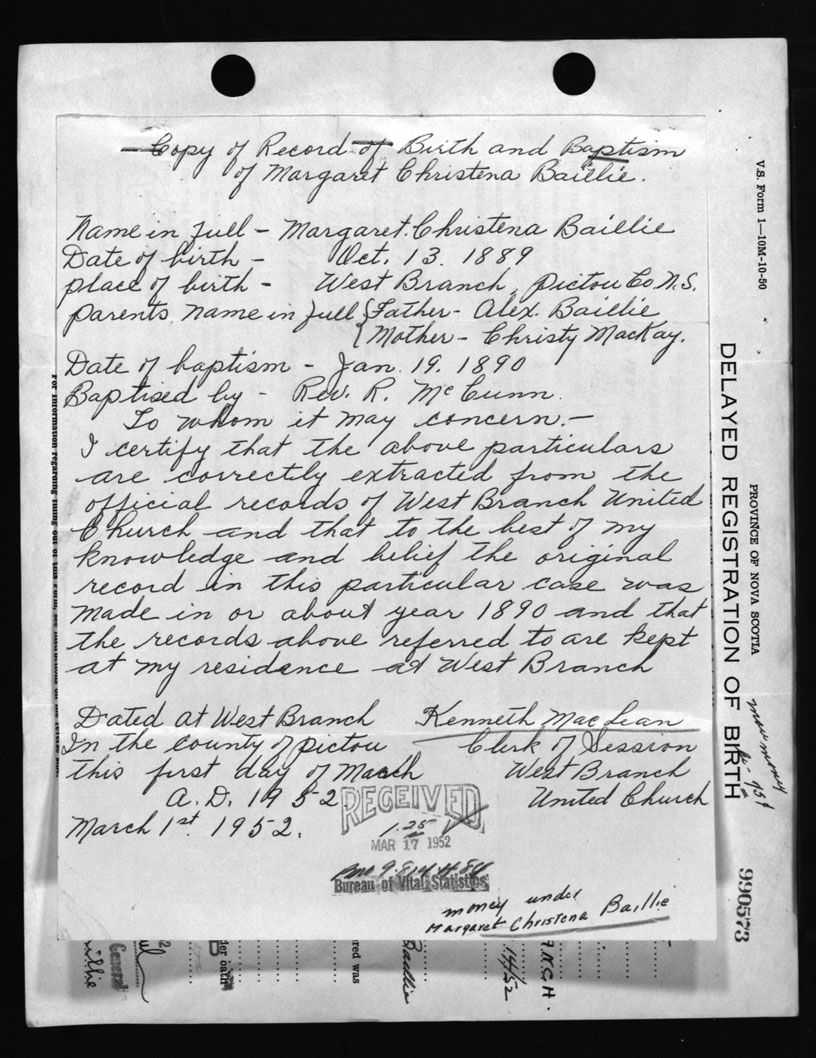 Copy of Record of Birth and Baptism
of Margaret Christena Baillie.
Name in full - Margaret Christena Baillie
Date of birth - Oct. 13. 1889
place of birth - West Branch, Pictou Co N.S.
parents name in full { Father - Alex. Baillie
{ Mother - Christy MacKay.
Date of baptism - Jan. 19. 1890
Baptised by - Rev. R. McCunn.
To whom it may concern. -
I certify that the above particulars
are correctly extracted from the
official records of West Branch United
Church and that to the best of my
knowledge and belief the original
record in this particular case was
made in or about year 1890 and that
the records above referred to are kept
at my residence at West Branch
Dated at West Branch
In the county of pictou
this first day of March
A.D. 1952
March 1st. 1952.
Kenneth MacLean
Clerk of Session
West Branch
United Church
RECEIVED
1.25
MAR 17 1952
Bureau of Vital Statistics
money under
Margaret Christena Baillie
V.S. Form 1—10M-10-50
PROVINCE OF NOVA SCOTIA
DELAYED REGISTRATION OF BIRTH
990573
For information regarding
General
der oath
ered was
Baillie
14/52